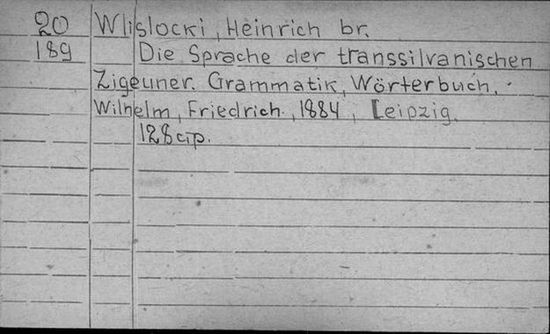 20 Wlislocki, Heinrich br.
189 Die Sprache der transsilvanischen
Zigeuner. Grammatik, Wörterbuch.
Wilhelm, Friedrich, 1884, Leipzig.
128 cтр.